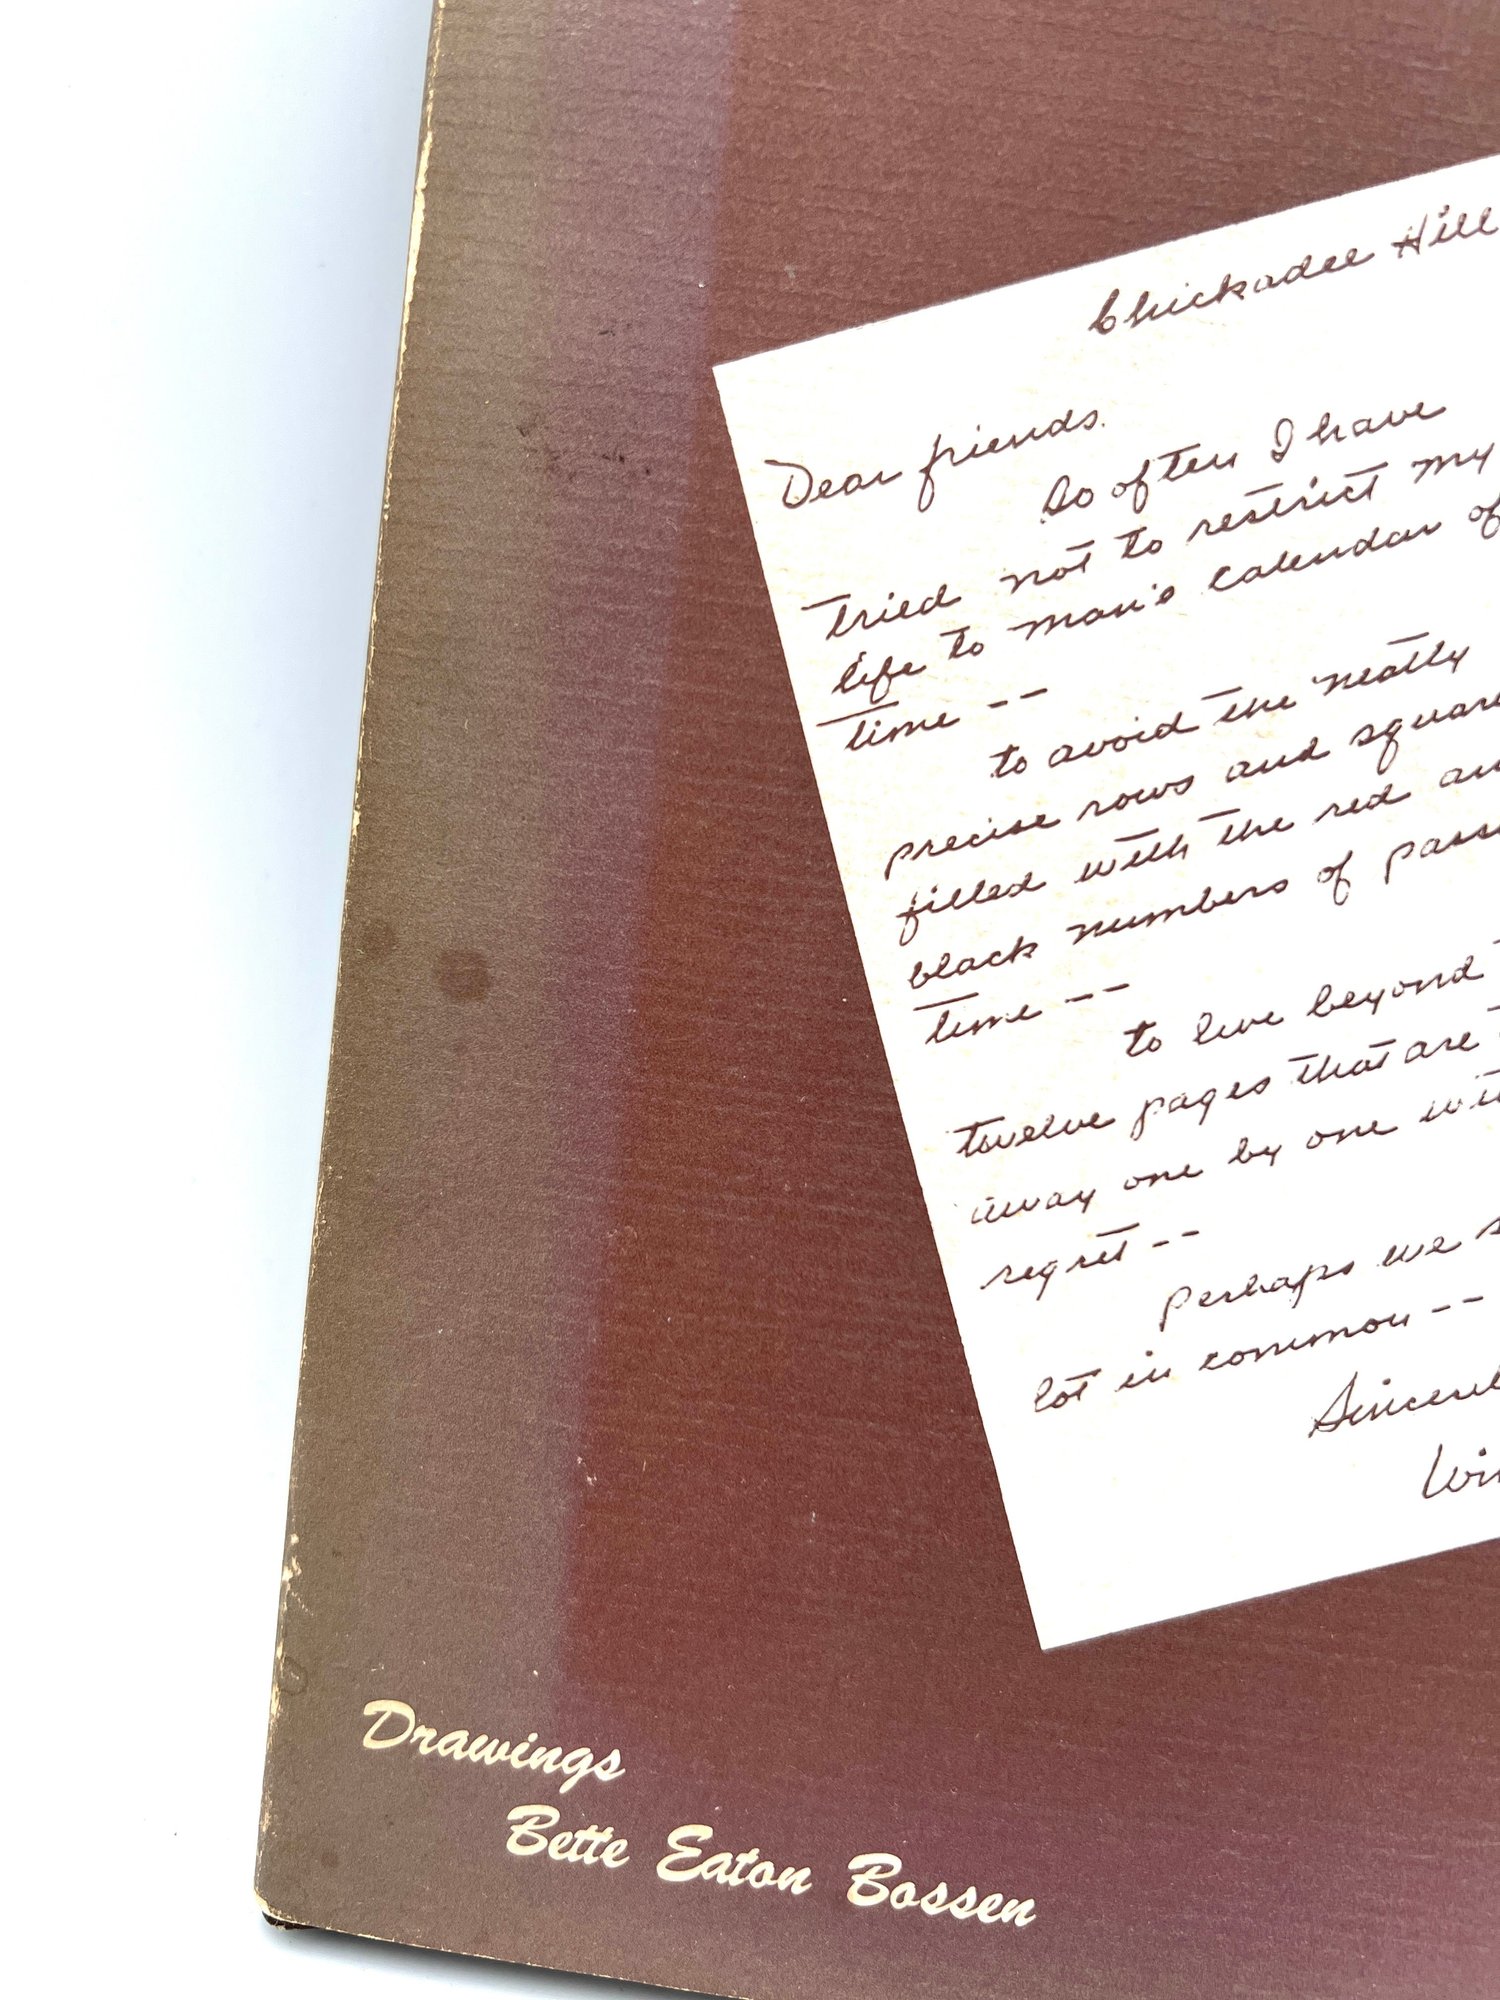 Chickadee Hill
Dear friends.
So often I have
tried not to restrict my
life to man's calendar of
time --
to avoid the neatly
precise rows and square
filled with the red an
black numbers of pass
time --
to live beyond
twelve pages that are
away one by one wit
regret --
Perhaps we s
lot in common --
Sincerel
Wi
Drawings
Bette Eaton Bossen